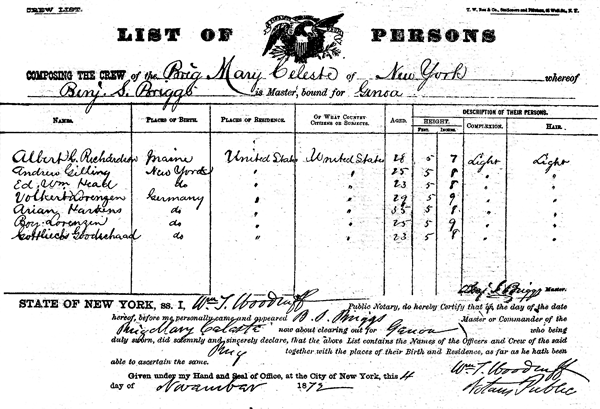 CREW LIST.
T. W. Dee & Co., Stationers and Printers, 45 Wall St., N. Y.
LIST OF PERSONS
COMPOSING THE CREW of the Brig Mary Celeste of New York whereof
Benj. S. Briggs is Master, bound for Genoa
NAMES. PLACES OF BIRTH. PLACES OF RESIDENCE. OF WHAT COUNTRY CITIZENS OR SUBJECTS. AGED. DESCRIPTION OF THEIR PERSONS.
HEIGHT. FEET. INCHES. COMPLEXION. HAIR.
Albert G. Richardson Maine United States United States 28 5 7 Light Light
Andrew Gilling New York " " 25 5 8 " "
Ed. Wm Head do " " 23 5 8 " "
Volkert Lorenzen Germany " " 29 5 9 " "
Arian Harbens do " " 35 5 8 " "
Boy Lorenzen do " " 25 5 9 " "
Gottlieb Goodschaad do " " 23 5 8 " "
Benj. S. Briggs Master.
STATE OF NEW YORK, ss. I, Wm. T. Woodruff Public Notary, do hereby Certify that on the day of the date
hereof, before me personally came and appeared B. S. Briggs Master or Commander of the
Brig Mary Celeste now about clearing out for Genoa who being
duly sworn, did solemnly and sincerely declare, that the above List contains the Names of the Officers and Crew of the said
Brig together with the places of their Birth and Residence, as far as he hath been
able to ascertain the same.
Given under my Hand and Seal of Office, at the City of New York, this 4
day of November 1872
Wm. T. Woodruff
Notary Public